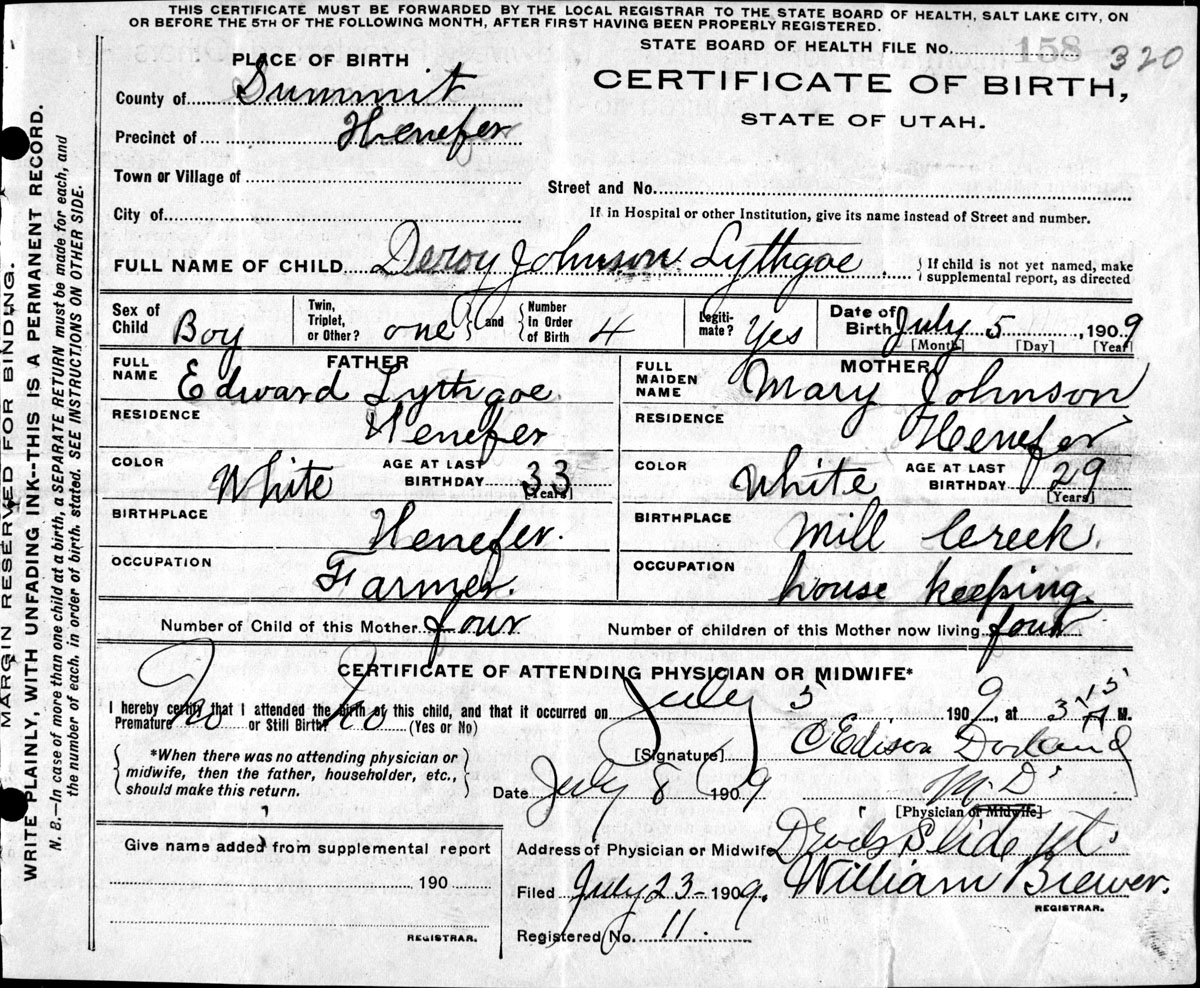 THIS CERTIFICATE MUST BE FORWARDED BY THE LOCAL REGISTRAR TO THE STATE BOARD OF HEALTH, SALT LAKE CITY, ON
OR BEFORE THE 5TH OF THE FOLLOWING MONTH, AFTER FIRST HAVING BEEN PROPERLY REGISTERED.
STATE BOARD OF HEALTH FILE No. 158 320
PLACE OF BIRTH
CERTIFICATE OF BIRTH,
STATE OF UTAH.
County of Summit
Precinct of Henefer
Town or Village of
Street and No.
City of
If in Hospital or other Institution, give its name instead of Street and number.
FULL NAME OF CHILD Deroy Johnson Lythgoe
{ If child is not yet named, make
supplemental report, as directed
Sex of Child Boy
Twin, Triplet, or Other? one } and { Number in Order of Birth 4
Legiti-mate? Yes
Date of Birth July 5, 1909
[Month] [Day] [Year]
FATHER
FULL NAME Edward Lythgoe
RESIDENCE Henefer
COLOR White AGE AT LAST BIRTHDAY 33 [Years]
BIRTHPLACE Henefer.
OCCUPATION Farmer.
MOTHER
FULL MAIDEN NAME Mary Johnson
RESIDENCE Henefer
COLOR White AGE AT LAST BIRTHDAY 29 [Years]
BIRTHPLACE Mill Creek.
OCCUPATION house keeping.
Number of Child of this Mother four
Number of children of this Mother now living four
CERTIFICATE OF ATTENDING PHYSICIAN OR MIDWIFE*
I hereby certify that I attended the Birth of this child, and that it occurred on July 5 1909, at 3:15 A M.
Premature No or Still Birth? No (Yes or No)
{ *When there was no attending physician or
midwife, then the father, householder, etc.,
should make this return. }
[Signature] Edison Dorland
M.D.
Date July 8 1909
[Physician or Midwife]
Address of Physician or Midwife Devils Slide Ut.
Give name added from supplemental report
190
REGISTRAR.
Filed July 23-1909. William Brewer.
REGISTRAR.
Registered No. 11.
MARGIN RESERVED FOR BINDING.
WRITE PLAINLY, WITH UNFADING INK--THIS IS A PERMANENT RECORD.
N. B.—In case of more than one child at a birth, a SEPARATE RETURN must be made for each, and
the number of each, in order of birth, stated. SEE INSTRUCTIONS ON OTHER SIDE.